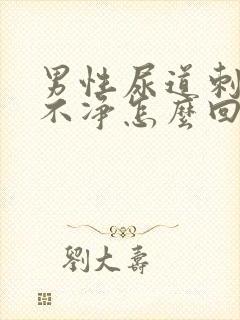 男性尿道刺
不净怎麼回
劉大壽